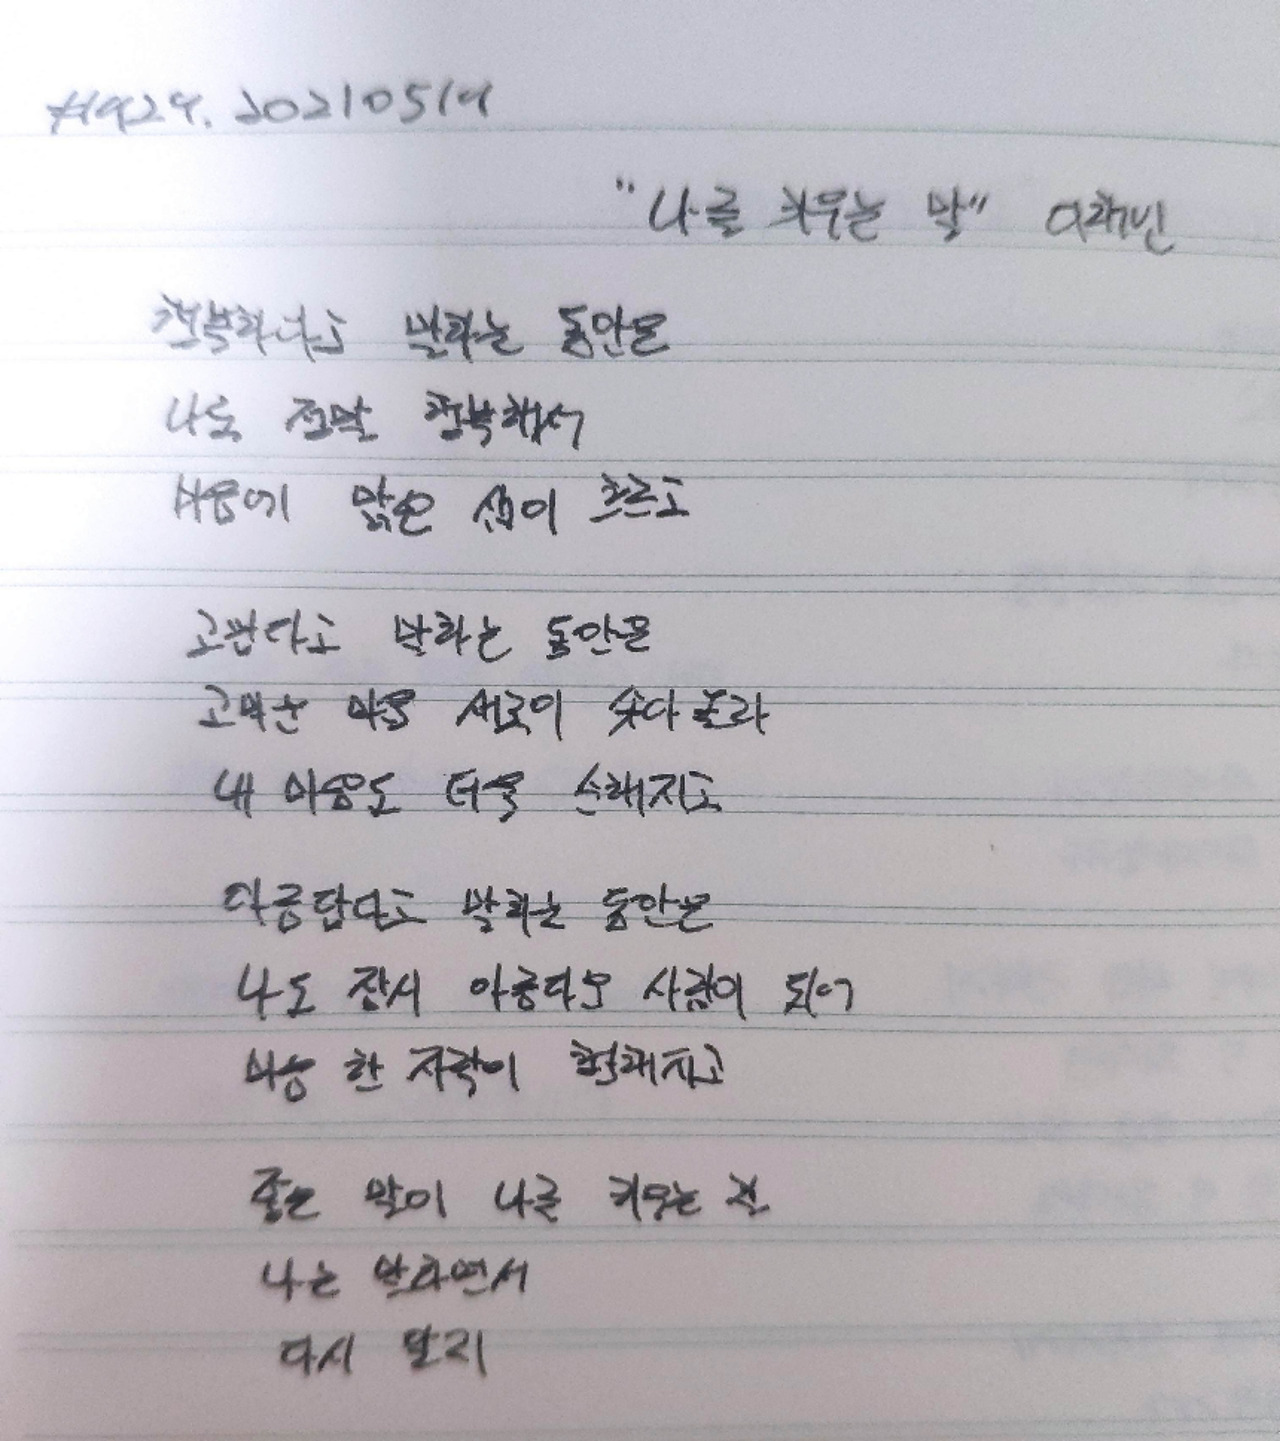 #1929. 20210519
"나를 키우는 말" 이해인
행복하다고 말하는 동안은
나도 정말 행복해서
마음에 맑은 샘이 흐르고
고맙다고 말하는 동안은
고마운 마음 새로이 솟아올라
내 마음도 더욱 순해지고
아름답다고 말하는 동안은
나도 잠시 아름다운 사람이 되어
마음 한 자락이 환해지고
좋은 말이 나를 키우는 걸
나는 말하면서
다시 알지